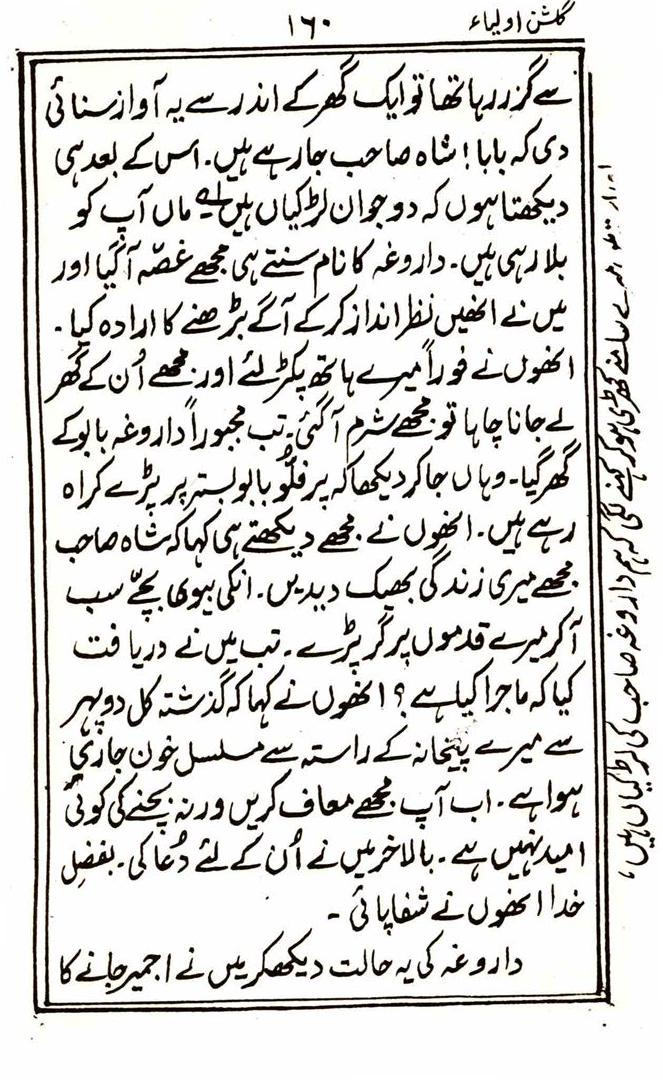 گلشن اولیاء
۱۶۰
سے گزر رہا تھا تو ایک گھر کے اندر سے یہ آواز سنائی
دی کہ بابا! شاہ صاحب جا رہے ہیں۔ اس کے بعد ہی
دیکھتا ہوں کہ دو جوان لڑکیاں ہیں ماں آپ کو
بلا رہی ہیں۔ داروغہ کا نام سنتے ہی مجھے غصّہ آگیا اور
میں نے انھیں نظر انداز کر کے آگے بڑھنے کا ارادہ کیا۔
انھوں نے فوراً میرے ہاتھ پکڑ لئے اور مجھے اُن کے گھر
لے جانا چاہا تو مجھے شرم آگئی۔ تب مجبوراً داروغہ بابو کے
گھر گیا۔ وہاں جا کر دیکھا کہ پرفلّو بابو بستر پر پڑے کراہ
رہے ہیں۔ انھوں نے مجھے دیکھتے ہی کہا کہ شاہ صاحب
مجھے میری زندگی بھیک دیدیں۔ انکی بیوی بچّے سب
آکر میرے قدموں پر گر پڑے۔ تب میں نے دریافت
کیا کہ ماجرا کیا ہے؟ انھوں نے کہا کہ گذشتہ کل دوپہر
سے میرے پیخانہ کے راستہ سے مسلسل خون جاری
ہوا ہے۔ اب آپ مجھے معاف کریں ورنہ بچنے کی کوئی
امید نہیں ہے۔ بالاخر میں نے اُن کے لئے دُعا کی۔ بفضلِ
خدا انھوں نے شفا پائی۔
داروغہ کی یہ حالت دیکھکر میں نے اجمیر جانے کا
سامنے کھڑی ہو کر کہنے لگی کہ ہم داروغہ صاحب کی لڑکیاں ہیں،